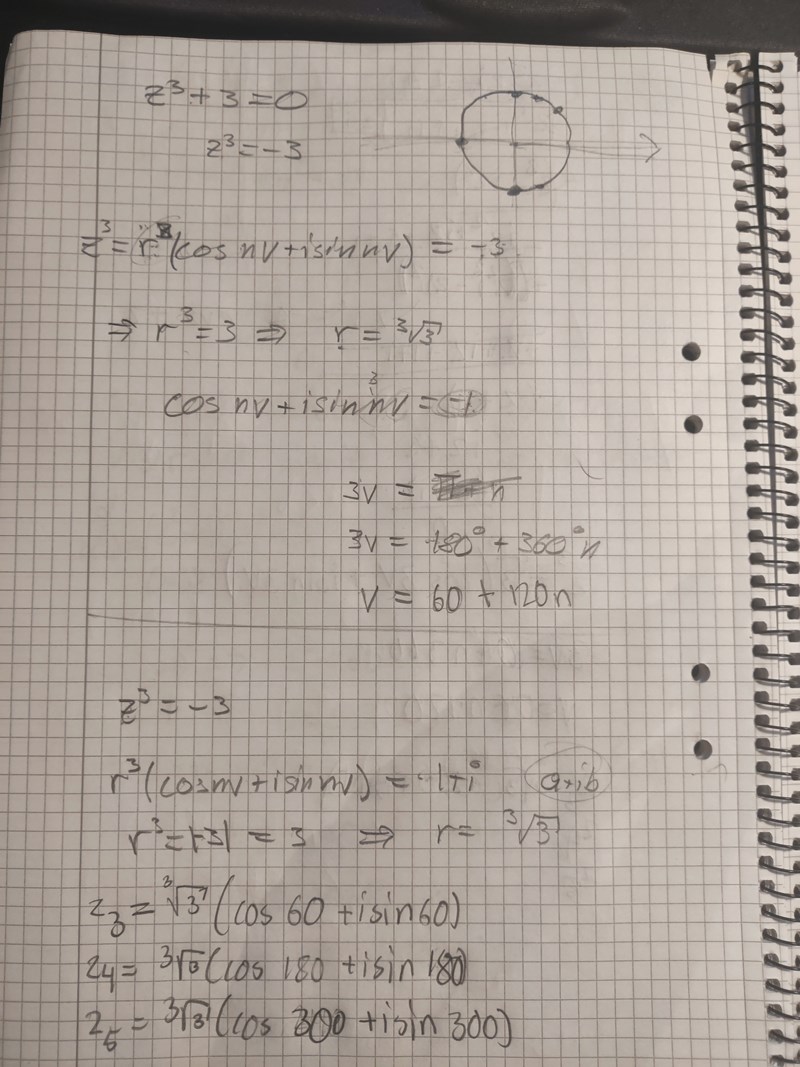 z³ + 3 = 0
z³ = -3
z³ = r³ (cos nv + i sin nv) = -3
⇒ r³ = 3 ⇒ r = ³√3
cos nv + i sin nv = -1
3v =
3v = 180° + 360°n
v = 60 + 120n
z³ = -3
r³ (cos nv + i sin nv) = -1 + i a+ib
r³ = |-3| = 3 ⇒ r = ³√3
z₃ = ³√3 (cos 60 + i sin 60)
z₄ = ³√3 (cos 180 + i sin 180)
z₅ = ³√3 (cos 300 + i sin 300)